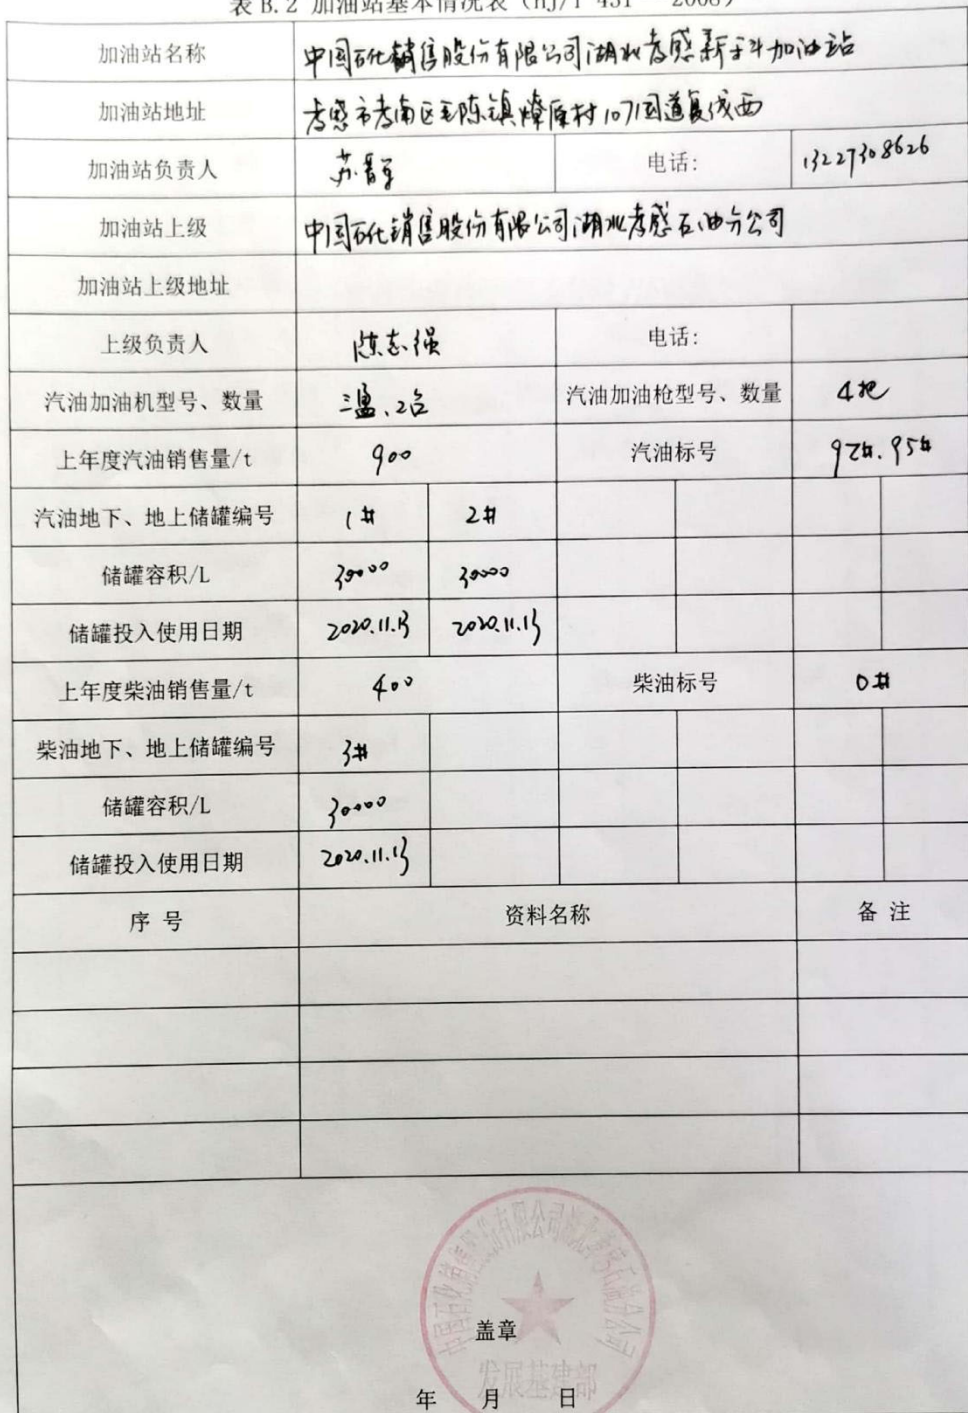 表 B.2 加油站基本情况表（HJ/T 431—2008）
加油站名称 中国石化销售股份有限公司湖北孝感新 加油站
加油站地址 孝感市孝南区毛陈镇燎原村107国道复线西
加油站负责人 苏 电话: 13227308626
加油站上级 中国石化销售股份有限公司湖北孝感石油分公司
加油站上级地址
上级负责人 陈志强 电话:
汽油加油机型号、数量 三盈、2台 汽油加油枪型号、数量 4把
上年度汽油销售量/t 900 汽油标号 92#、95#
汽油地下、地上储罐编号 1# 2#
储罐容积/L 30000 30000
储罐投入使用日期 2020.11.13 2020.11.13
上年度柴油销售量/t 400 柴油标号 0#
柴油地下、地上储罐编号 3#
储罐容积/L 30000
储罐投入使用日期 2020.11.13
序 号 资料名称 备 注
中国石化销售股份有限公司湖北孝感石油分公司
盖章
发展基建部
年 月 日